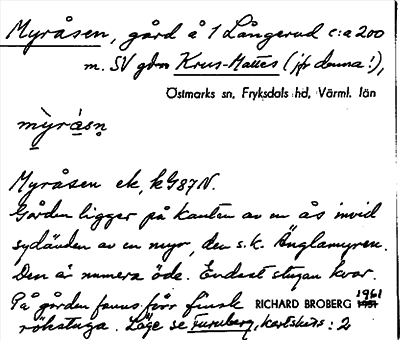 Myråsen, gård å 1 Långerud c:a 200
m. SV gdn Krus-Mattes (jfr denna!),
Östmarks sn, Fryksdals hd, Värml. län
mỳrásn̥
Myråsen ek, kG87N.
Gården ligger på kanten av en ås invid
sydänden av en myr, den s.k. Änglamyren.
Den är numera öde. Endast stugan kvar.
På gården fanns förr finsk RICHARD BROBERG 1961
rökstuga. Läge se Furuberg, kartskiss: 2